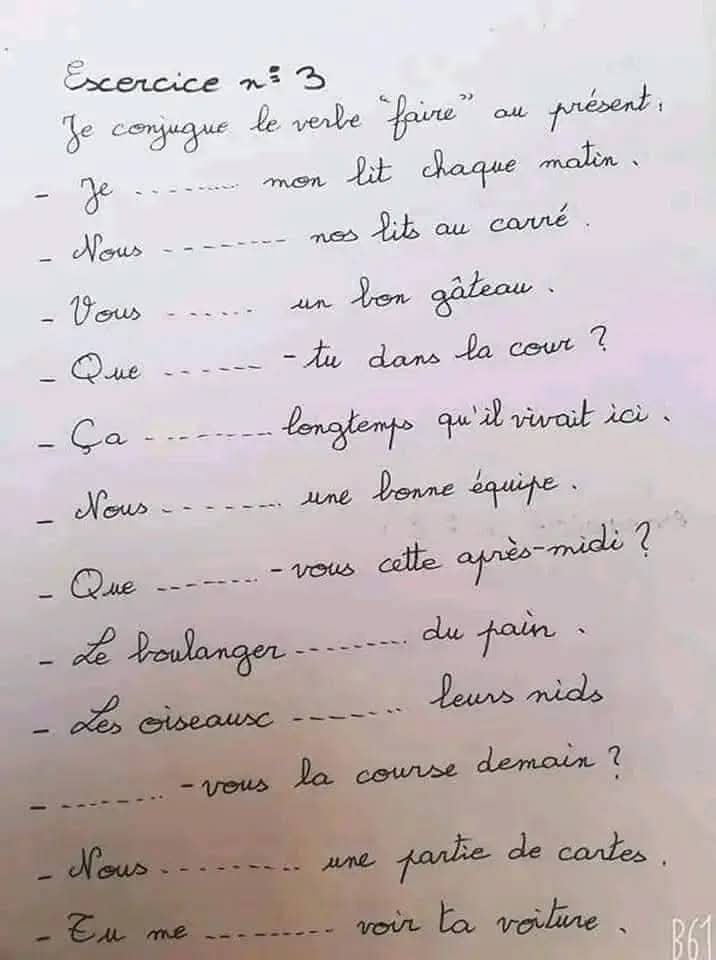 Excercice n° 3
Je conjugue le verbe "faire" au présent.
- Je ........ mon lit chaque matin.
- Nous ........ nos lits au carré.
- Vous ...... un bon gâteau.
- Que ...... - tu dans la cour ?
- Ça ........ longtemps qu'il vivait ici.
- Nous ........ une bonne équipe.
- Que ........ - vous cette après-midi ?
- Le boulanger ........ du pain.
- Les oiseaux ........ leurs nids
- ........ - vous la course demain ?
- Nous ........ une partie de cartes.
- Tu me ........ voir ta voiture.
B61